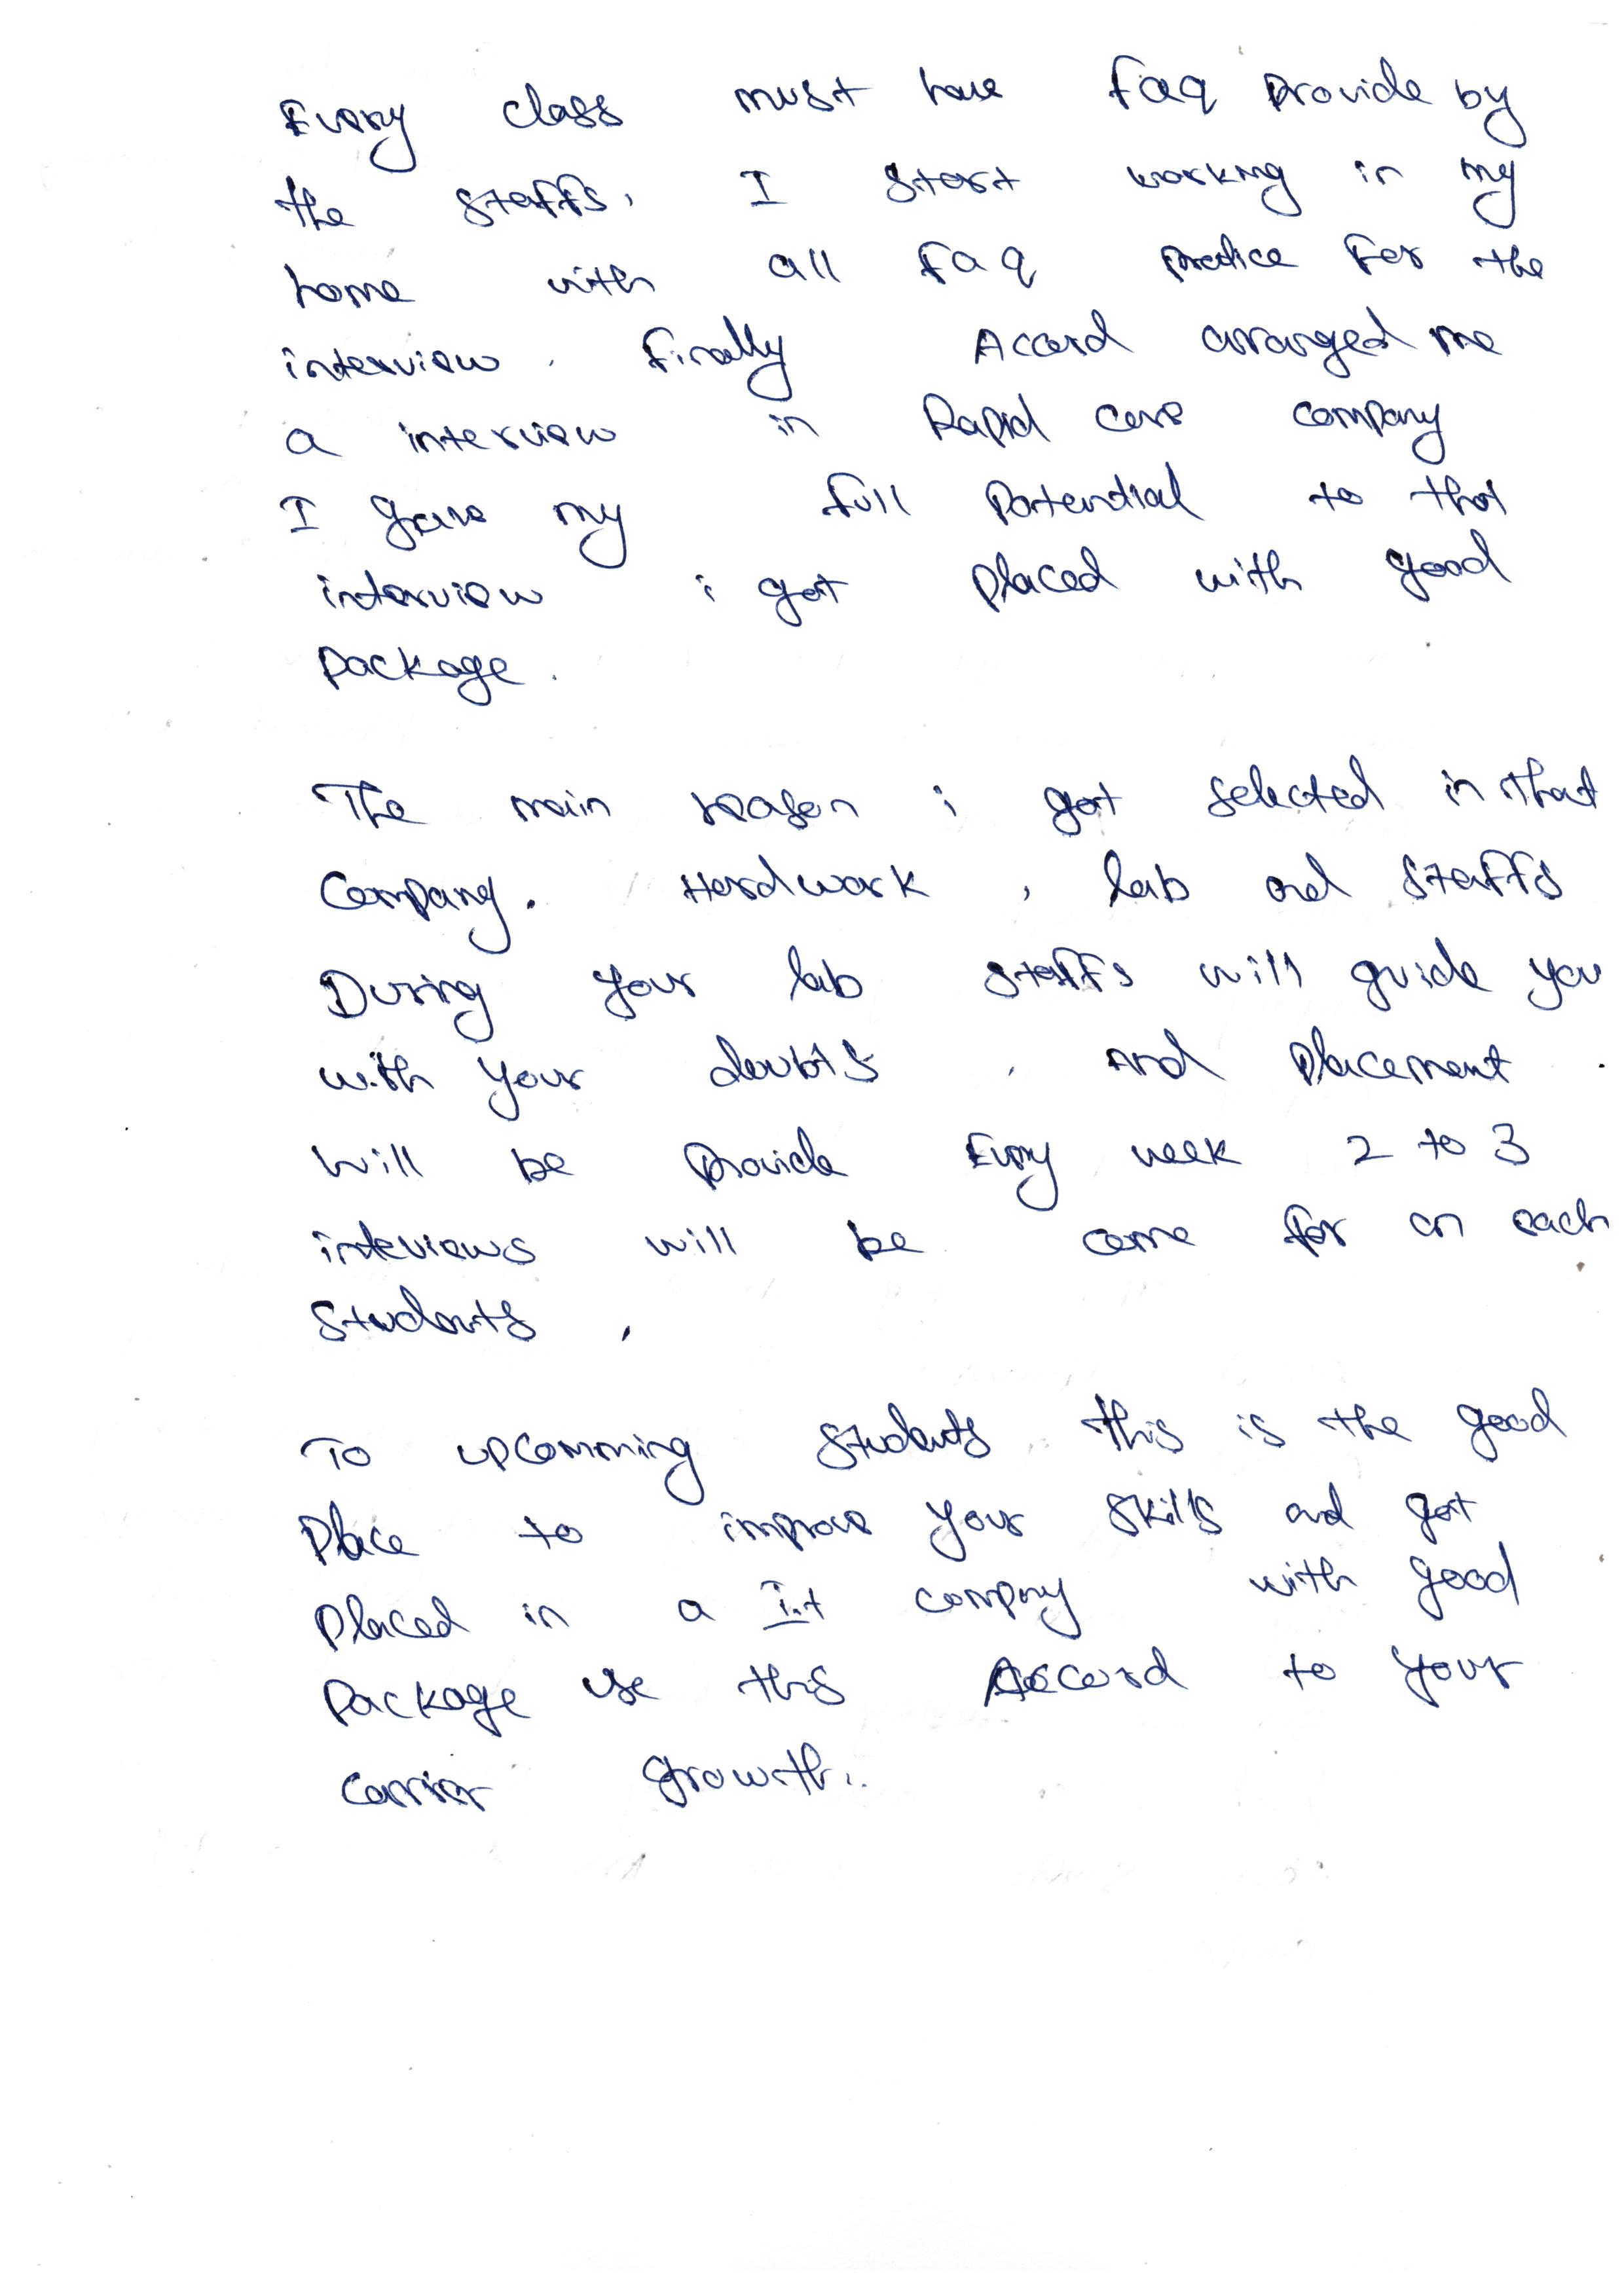 Every class must have faq provide by
the staffs, I start working in my
home with all faq practice for the
interview. Finally Accord arranged me
a interview in Rapid care company
I gave my full potential to that
interview i got placed with good
package.
The main reason i got selected in that
Company. Hardwork, lab and staffs
During your lab staffs will guide you
with your doubts, and placement
will be provide Every week 2 to 3
interviews will be come for an each
students,
To upcomming students this is the good
place to improve your skills and get
placed in a I.t company with good
package use this Accord to your
carrier growth..